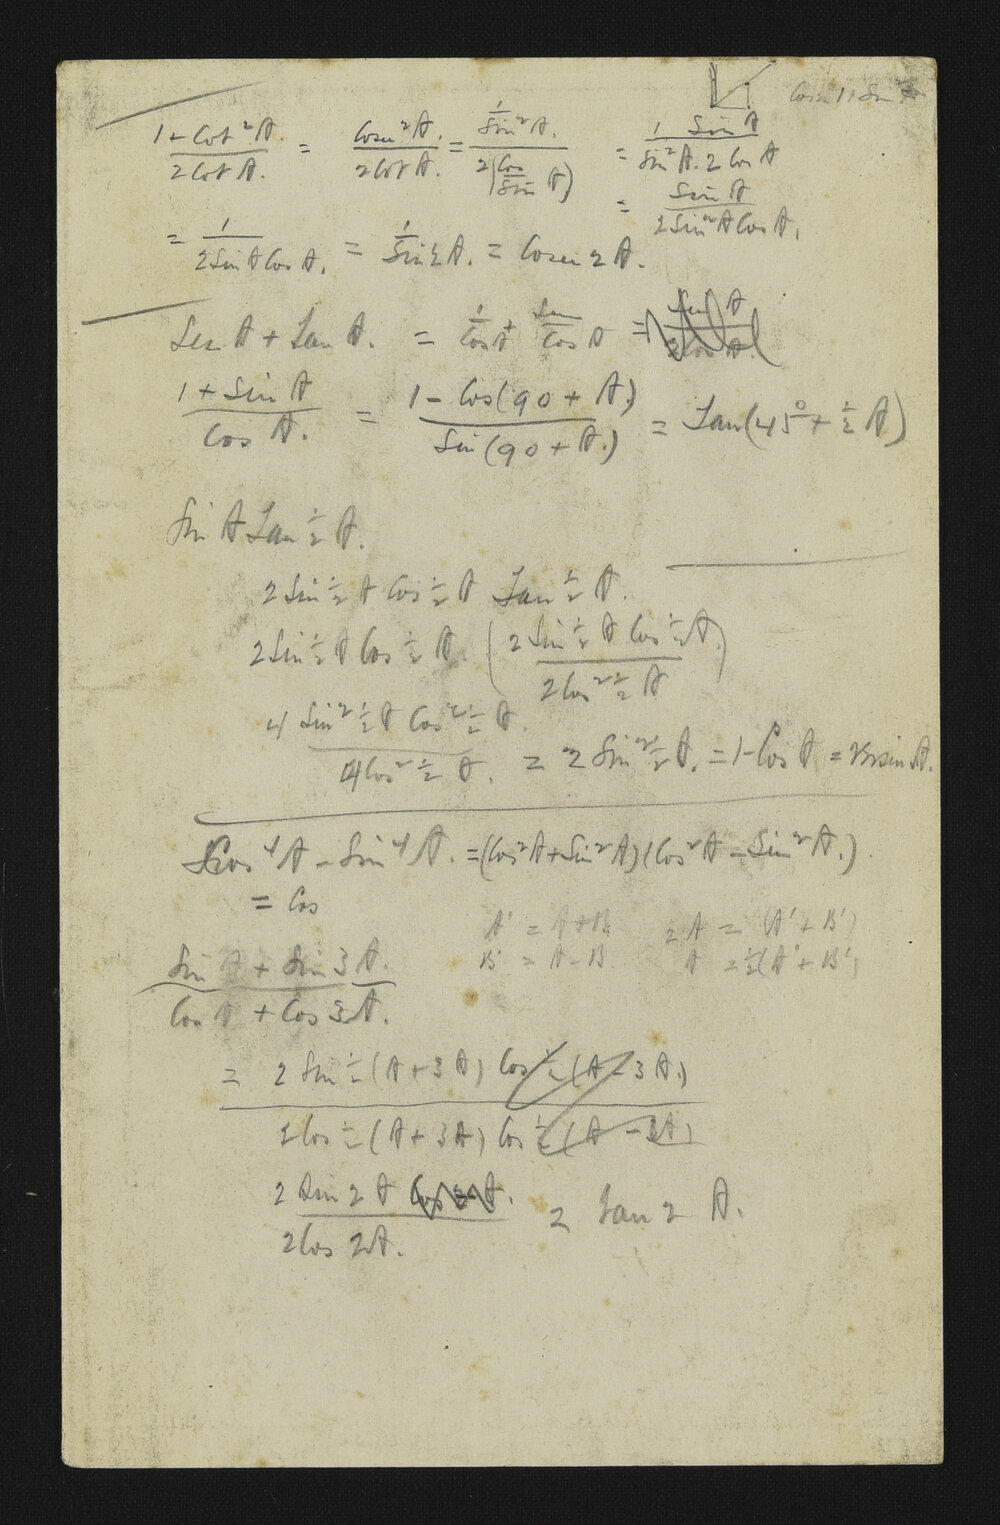 (1 + Cot²A.)/(2 Cot A.) = (Cosec²A.)/(2 Cot A.) = (1/Sin²A.)/(2(Cos/Sin A)) = (1 Sin A)/(Sin²A. 2 Cos A)
= (Sin A)/(2 Sin²A Cos A.)
= 1/(2 Sin A Cos A.) = 1/(Sin 2 A.) = Cosec 2 A.
Sec A + Tan A. = 1/(Cos A) + Sin/Cos A =
(1 + Sin A)/(Cos A.) = (1 - Cos(90 + A.))/(Sin (90 + A.)) = Tan(45° + ½ A)
Sin A Tan ½ A.
2 Sin ½ A Cos ½ A Tan ½ A.
2 Sin ½ A Cos ½ A. ((2 Sin ½ A Cos ½ A.)/(2 Cos² ½ A))
(4 Sin² ½ A Cos² ½ A.)/(4 Cos² ½ A.) = 2 Sin² ½ A. = 1 - Cos A = Versin A.
Cos⁴A - Sin⁴A. = (Cos²A + Sin²A)(Cos²A - Sin²A.)
= Cos
A' = A+B 2A = (A' + B')
B' = A-B A = ½(A' + B')
(Sin A + Sin 3 A.)/(Cos A + Cos 3A.)
= (2 Sin ½ (A + 3A) Cos ½ (A - 3A.))/(2 Cos ½ (A + 3A) Cos ½ (A - 3A))
(2 Sin 2 A Cos 2 A.)/(2 Cos 2A.) = Tan 2 A.